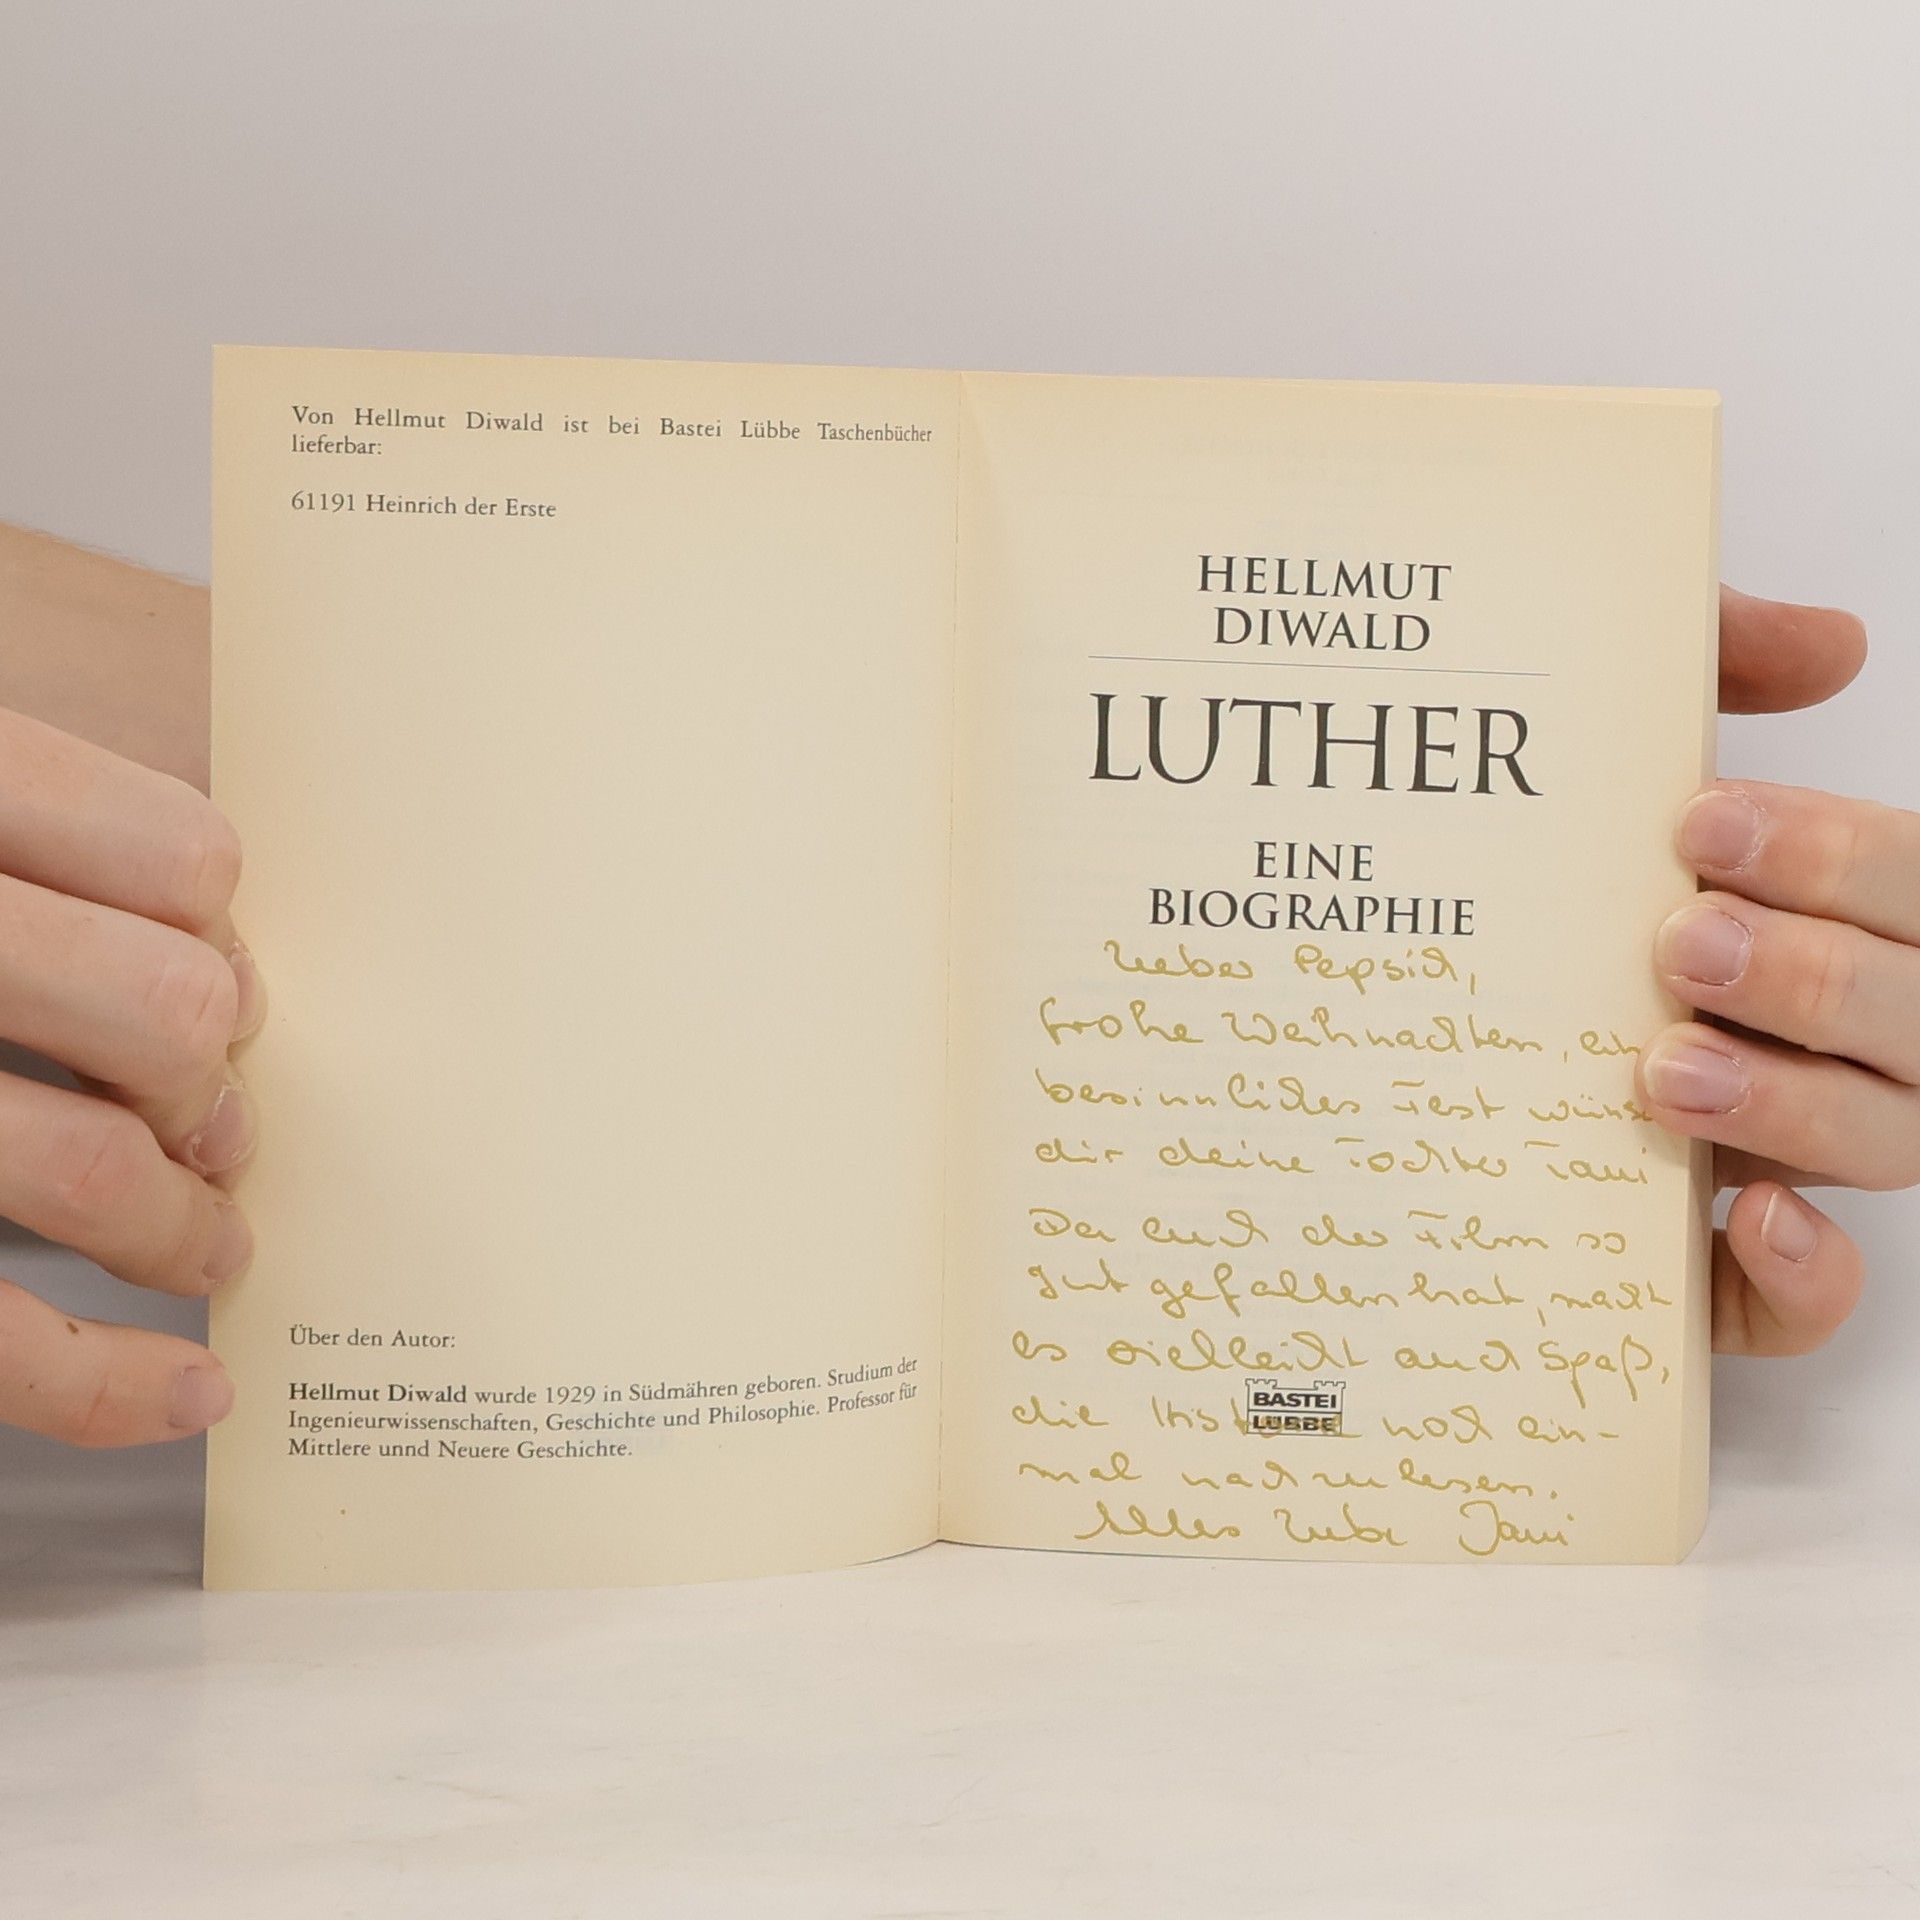 Von Hellmut Diwald ist bei Bastei Lübbe Taschenbücher
lieferbar:
61191 Heinrich der Erste
Über den Autor:
Hellmut Diwald wurde 1929 in Südmähren geboren. Studium der
Ingenieurwissenschaften, Geschichte und Philosophie. Professor für
Mittlere unnd Neuere Geschichte.
HELLMUT
DIWALD
LUTHER
EINE
BIOGRAPHIE
Lieber Pepsich,
frohe Weihnachten, ein
besinnliches Fest
dir deine Tochter
Da euch der Film so
gut gefallen hat, macht
es vielleicht auch Spaß,
die noch ein-
mal nachzulesen.
Alles Liebe
BASTEI
LÜBBE